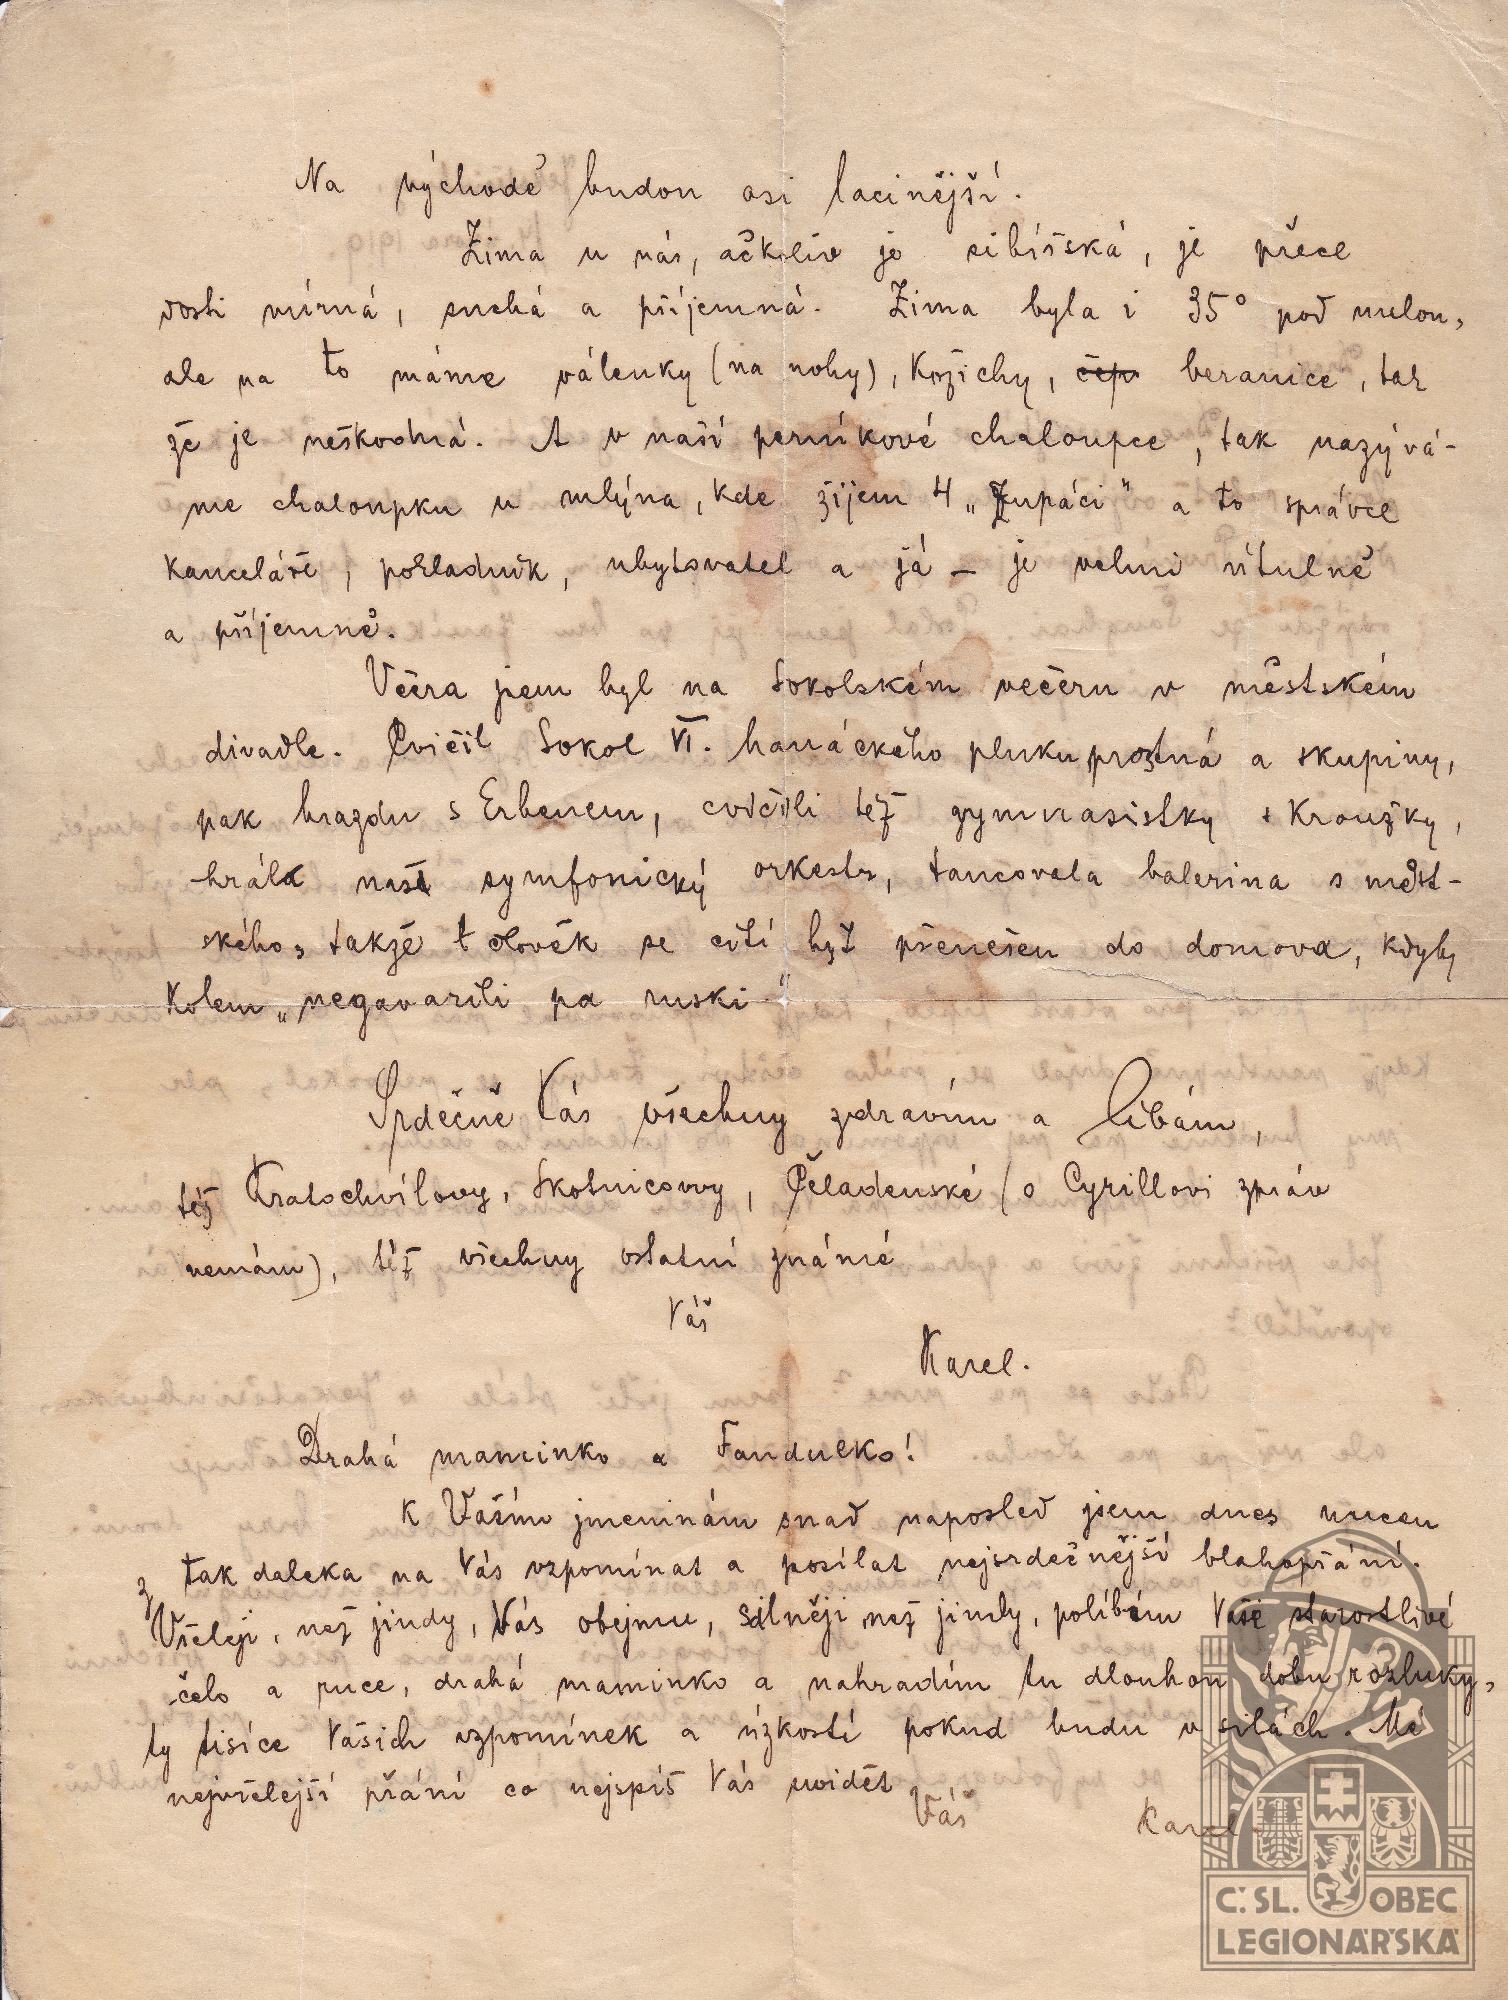 Na východě budou asi lacinější.
Zima u nás, ačkoliv je sibiřská, je přece
dosti mírná, suchá a příjemná. Zima byla i 35° pod nulou,
ale na to máme válenky (na nohy), kožichy, čep beranice, tak
že je neškodná. A v naší perníkové chaloupce, tak nazývá-
me chaloupku u mlýna, kde žijem 4 „Župáci" a to správce
kanceláře, pokladník, ubytovatel a já – je velmi útulně
a příjemně.
Včera jsem byl na Sokolském večeru v městském
divadle. Cvičil Sokol VI. hanáckého pluku prostná a skupiny,
pak hrazdu s Erbenem, cvičili též gymnasistky s kroužky,
hrála naše symfonický orkestr, tancovala balerina s měst-
ského, takže člověk se cítí být přenešen do domova, kdyby
kolem „negavarili pa ruski"
Srdečně Vás všechny zdravím a líbám,
též Kratochvílovy, Skotnicovy, Čeladenské (o Cyrillovi zpráv
nemám), též všechny ostatní známé
Váš
Karel.
Drahá maminko a Fandulko!
K Vašim jmeninám snad naposled jsem dnes nucen
z tak daleka na Vás vzpomínat a posílat nejsrdečnější blahopřání.
Vřeleji, než jindy, Vás obejmu, silněji než jindy, políbím Vaše starostlivé
čelo a ruce, drahá maminko a nahradím tu dlouhou dobu rozluky,
ty tisíce Vašich vzpomínek a úzkostí pokud budu v silách. Mé
nejvřelejší přání co nejspíš Vás uvidět
Váš Karel.
Č. SL. OBEC
LEGIONÁŘSKÁ